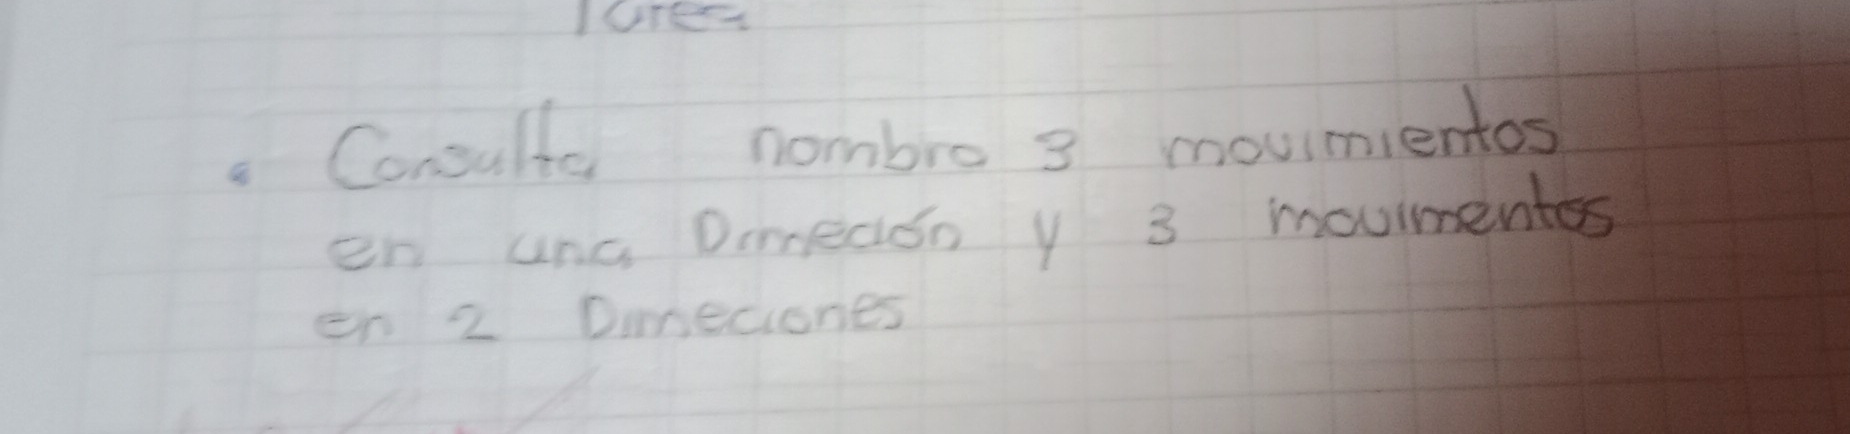 Tarea
Consulta nombre 3 movimientos
en una Dimeción y 3 movimentos
en 2 Dimeciones